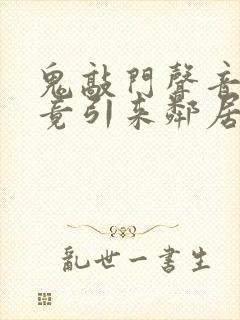 鬼敲門聲音
竟引来鄰居
亂世一書生